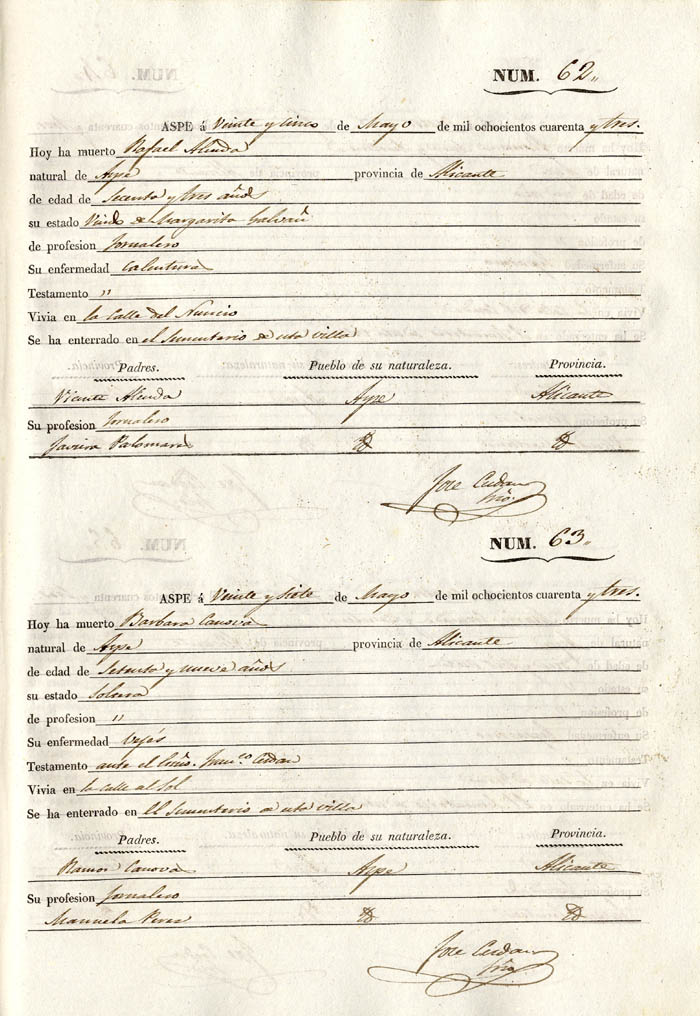 NUM. 62,,
ASPE á Veinte y Cinco de Mayo de mil ochocientos cuarenta y tres.
Hoy ha muerto Rafael Alenda
natural de Aspe provincia de Alicante
de edad de Secenta y tres años
su estado Viudo de Margarita Galvañ
de profesion Jornalero
Su enfermedad Calentura
Testamento ,,
Vivia en la Calle del Nuncio
Se ha enterrado en el Sementerio de esta villa
Padres. Pueblo de su naturaleza. Provincia.
Vicente Alenda Aspe Alicante
Su profesion Jornalero
Javiera Palomares
Jose Cerdan
NUM. 63,,
ASPE á Veinte y Siete de Mayo de mil ochocientos cuarenta y tres.
Hoy ha muerto Barbara Canova
natural de Aspe provincia de Alicante
de edad de Setenta y nueve años
su estado Soltera
de profesion ,,
Su enfermedad Vejés
Testamento ante el Cerdan
Vivia en la Calle al Sol
Se ha enterrado en El Sementerio de esta villa
Padres. Pueblo de su naturaleza. Provincia.
Ramon Canova Aspe Alicante
Su profesion Jornalero
Manuela Perez
Jose Cerdan